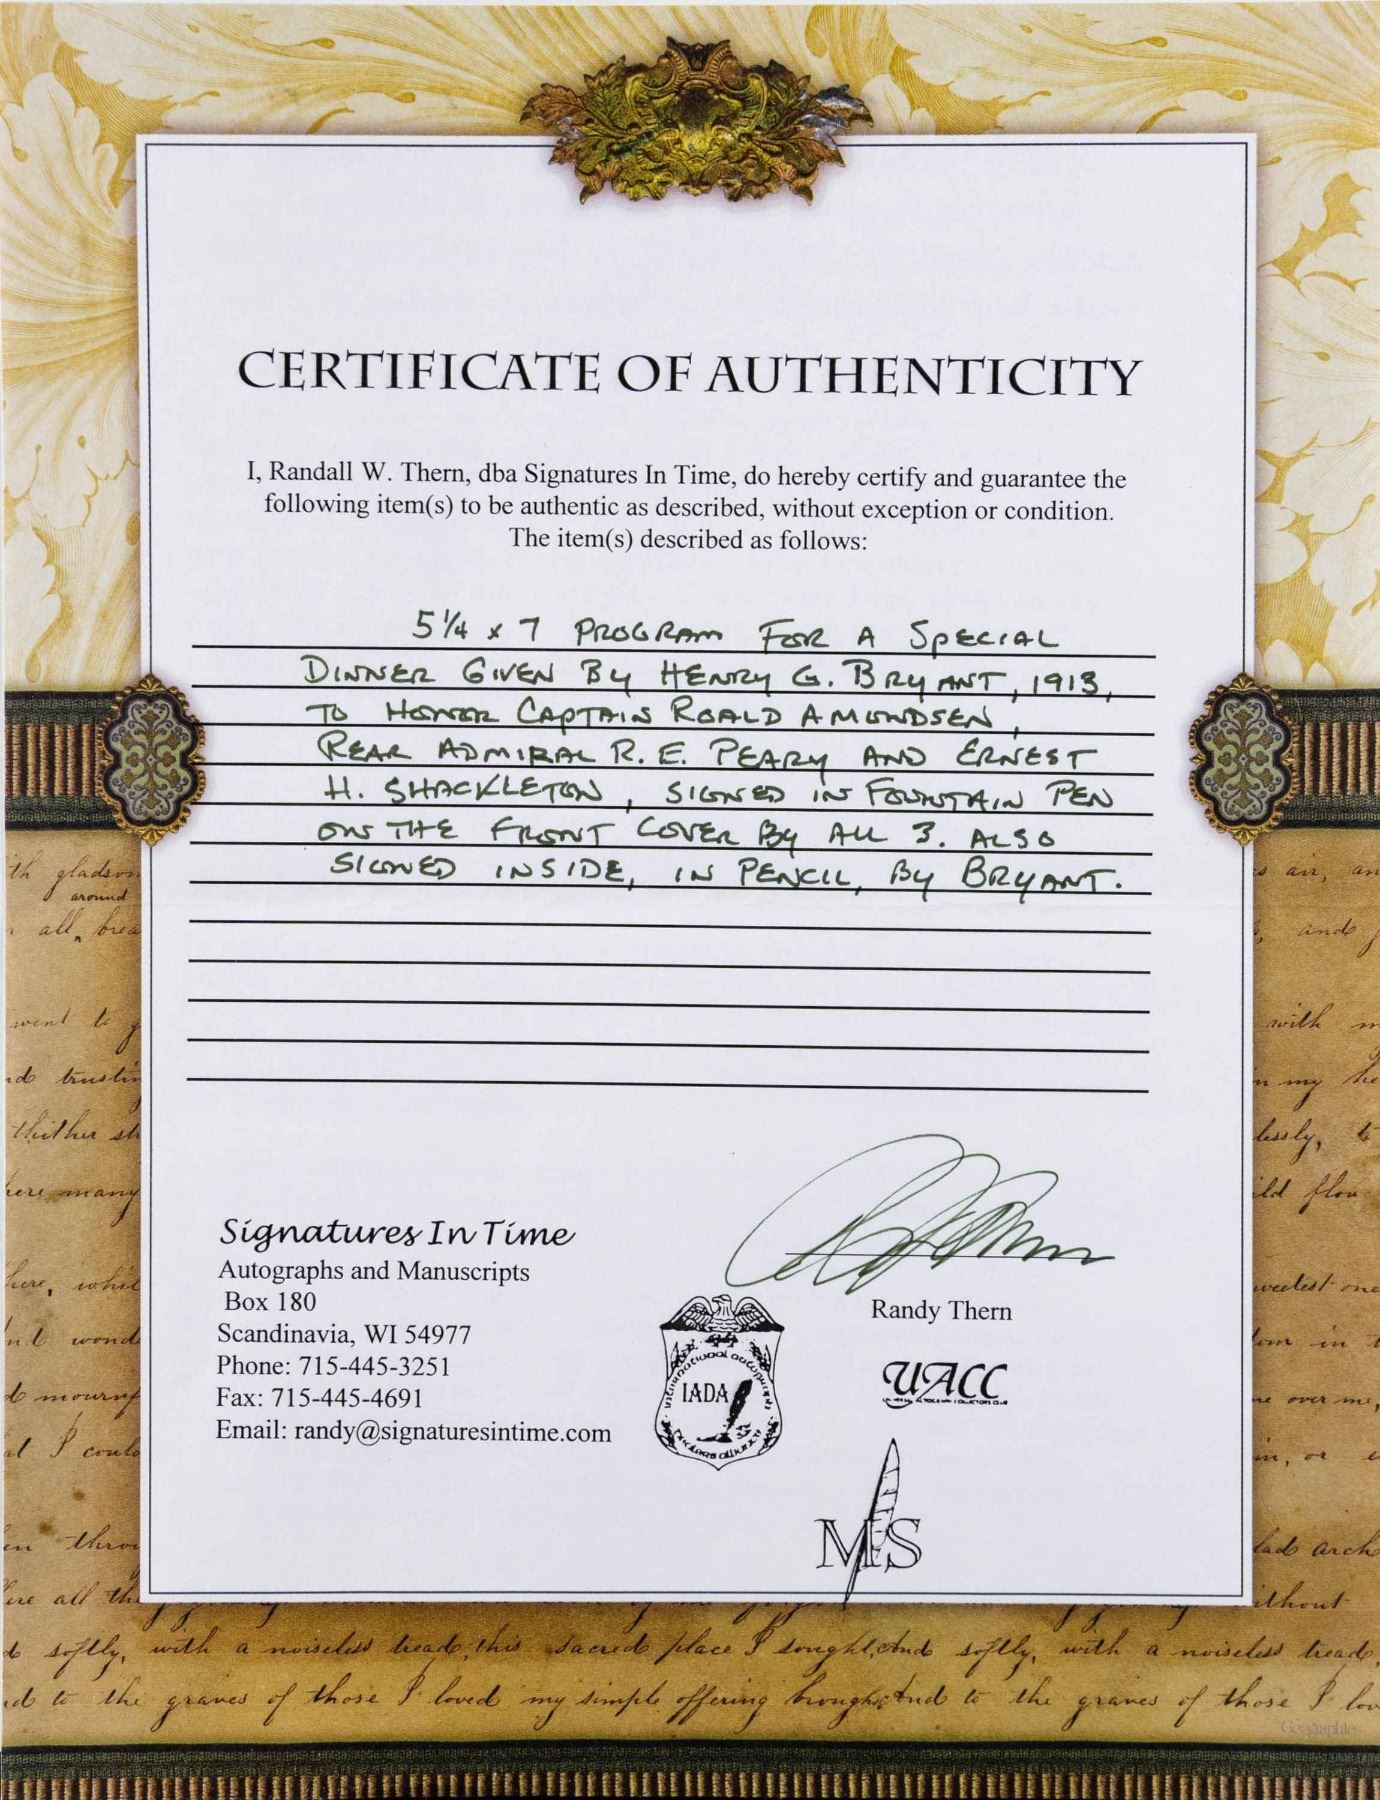 CERTIFICATE OF AUTHENTICITY
I, Randall W. Thern, dba Signatures In Time, do hereby certify and guarantee the
following item(s) to be authentic as described, without exception or condition.
The item(s) described as follows:
5 1/4 x 7 PROGRAM FOR A SPECIAL
DINNER GIVEN BY HENRY G. BRYANT, 1913,
TO HONOR CAPTAIN ROALD AMUNDSEN,
REAR ADMIRAL R. E. PEARY AND ERNEST
H. SHACKLETON, SIGNED IN FOUNTAIN PEN
ON THE FRONT COVER BY ALL 3. ALSO
SIGNED INSIDE, IN PENCIL, BY BRYANT.
Signatures In Time
Autographs and Manuscripts
Box 180
Scandinavia, WI 54977
Phone: 715-445-3251
Fax: 715-445-4691
Email: randy@signaturesintime.com
Randy Thern
IADA
UACC
MS
th gladsom
around
all, brea
went to g
nd trustin
thither st
here many
here, whil
nd wond
d mourny
at I coul
en throu
ere all the
s air, an
, and f
with m
n my he
lessly, t
ild flow
weetest one
in t
e over me,
in, or e
lad arch
ithout
d softly, with a noiseless tread, this sacred place I sought, And softly, with a noiseless tread,
nd to the graves of those I loved my simple offering brought, And to the graves of those I lov
Geographics